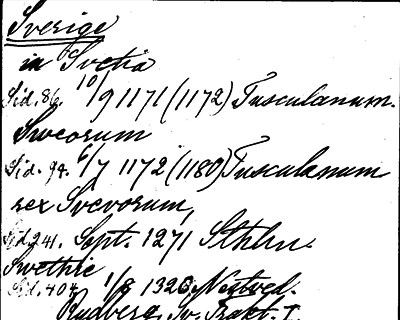 Sverige
in Svetia
Sid. 86. 10/9 1171 (1172) Tusculanum.
Sweorum
Sid. 94. 6/7 1172 (1180) Tusculanum
rex Svevorum,
Sid. 241. Sept. 1271 Sthlm.
Swethie
Sid. 404 1/8 1326, Nestved.
Rydberg, Sv. Trakt. I